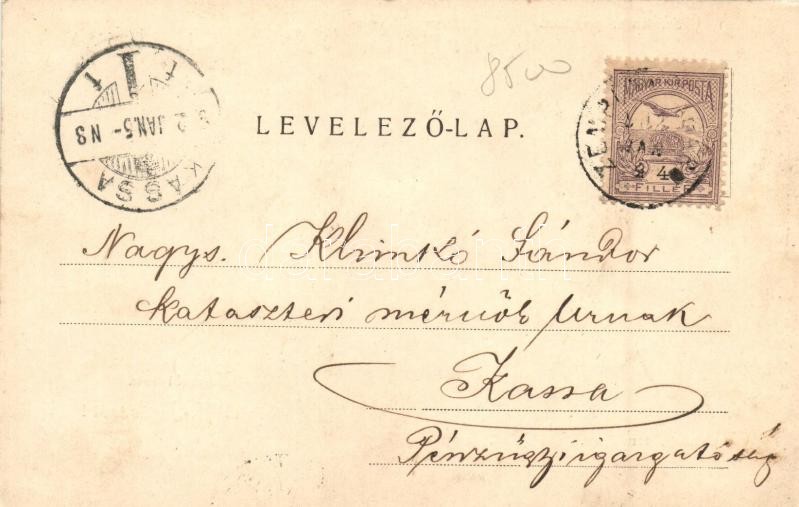 8500
LEVELEZŐ-LAP.
MAGYAR KIR. POSTA
4
FILLÉR
2 JAN. 5 - N 8
KASSA
Nagys. Klimkó Sándor
kataszteri mérnök Urnak
Kassa
Pénzügyigazgatóság